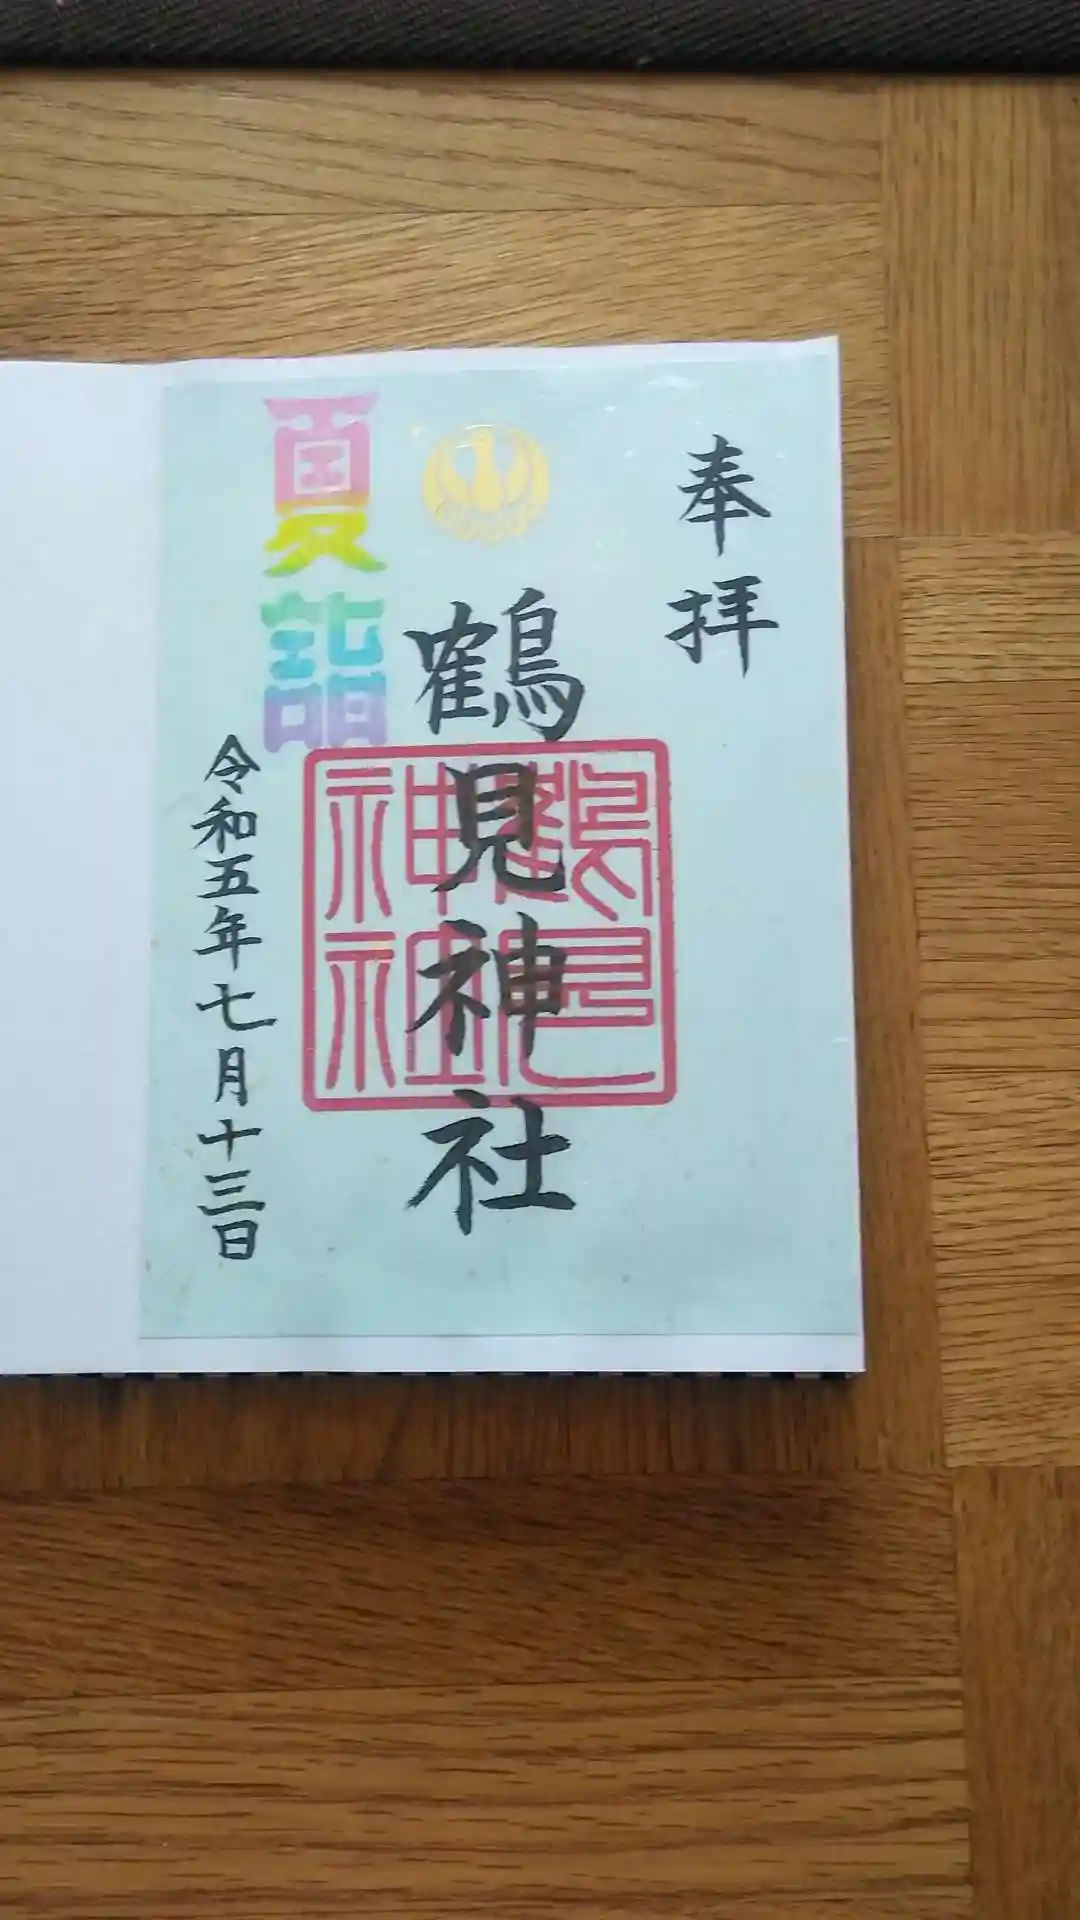 奉拝
鶴見神社
鶴見
神社
夏詣
令和五年七月十三日